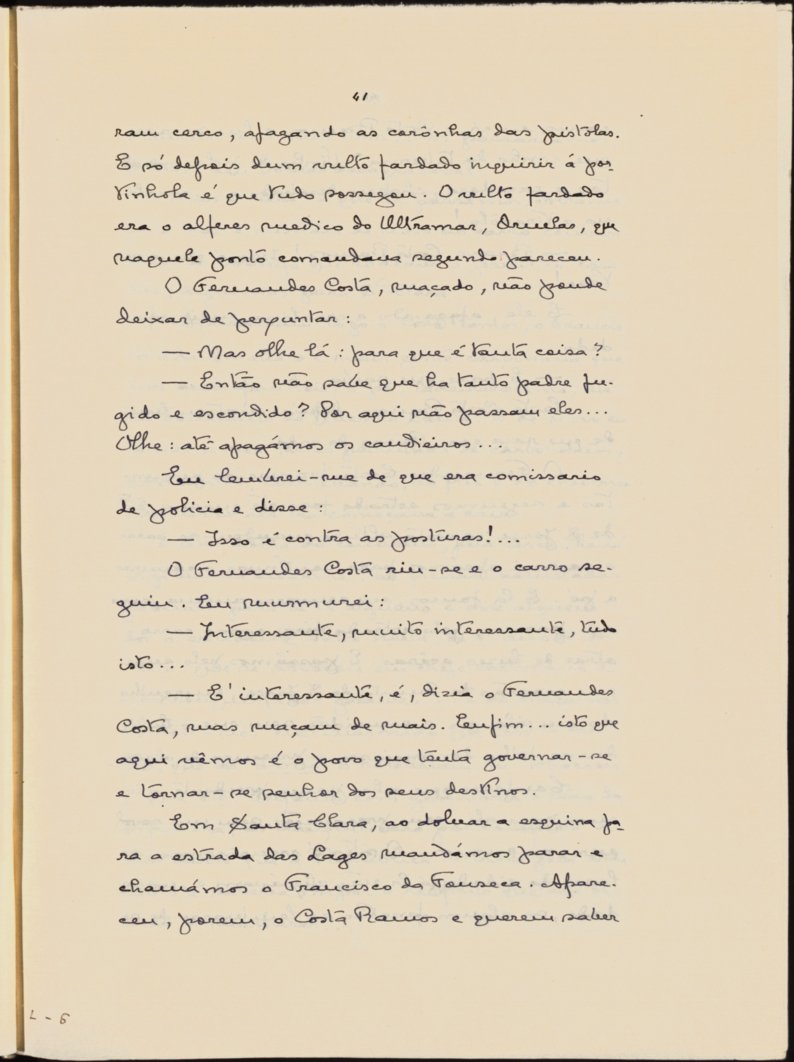 41
ram cerco, afagando as corônhas das pistólas.
E só depois dum vulto fardado inquirir á por-
tinhola é que tudo sossegou. O vulto fardado
era o alferes medico do Ultramar, Ornelas, que
naquele ponto comandava segundo pareceu.
O Fernandes Costa, maçado, não poude
deixar de perguntar:
— Mas olhe lá: para que é tanta coisa?
— Então não sabe que ha tanto padre fu-
gido e escondido? Por aqui não passam eles...
Olhe: até apagámos os candieiros...
Eu lembrei-me de que era comissario
de policia e disse:
— Isso é contra as posturas!...
O Fernandes Costa riu-se e o carro se-
guiu. Eu murmurei:
— Interessante, muito interessante, tudo
isto...
— E' interessante, é, dizia o Fernandes
Costa, mas maçam de mais. Enfim... isto que
aqui vêmos é o povo que tenta governar-se
e tornar-se senhor dos seus destinos.
Em Santa Clara, ao dobrar a esquina pa-
ra a estrada das Lages mandámos parar e
chamámos o Francisco da Fonseca. Apare-
ceu, porem, o Costa Ramos e querem saber
L-6